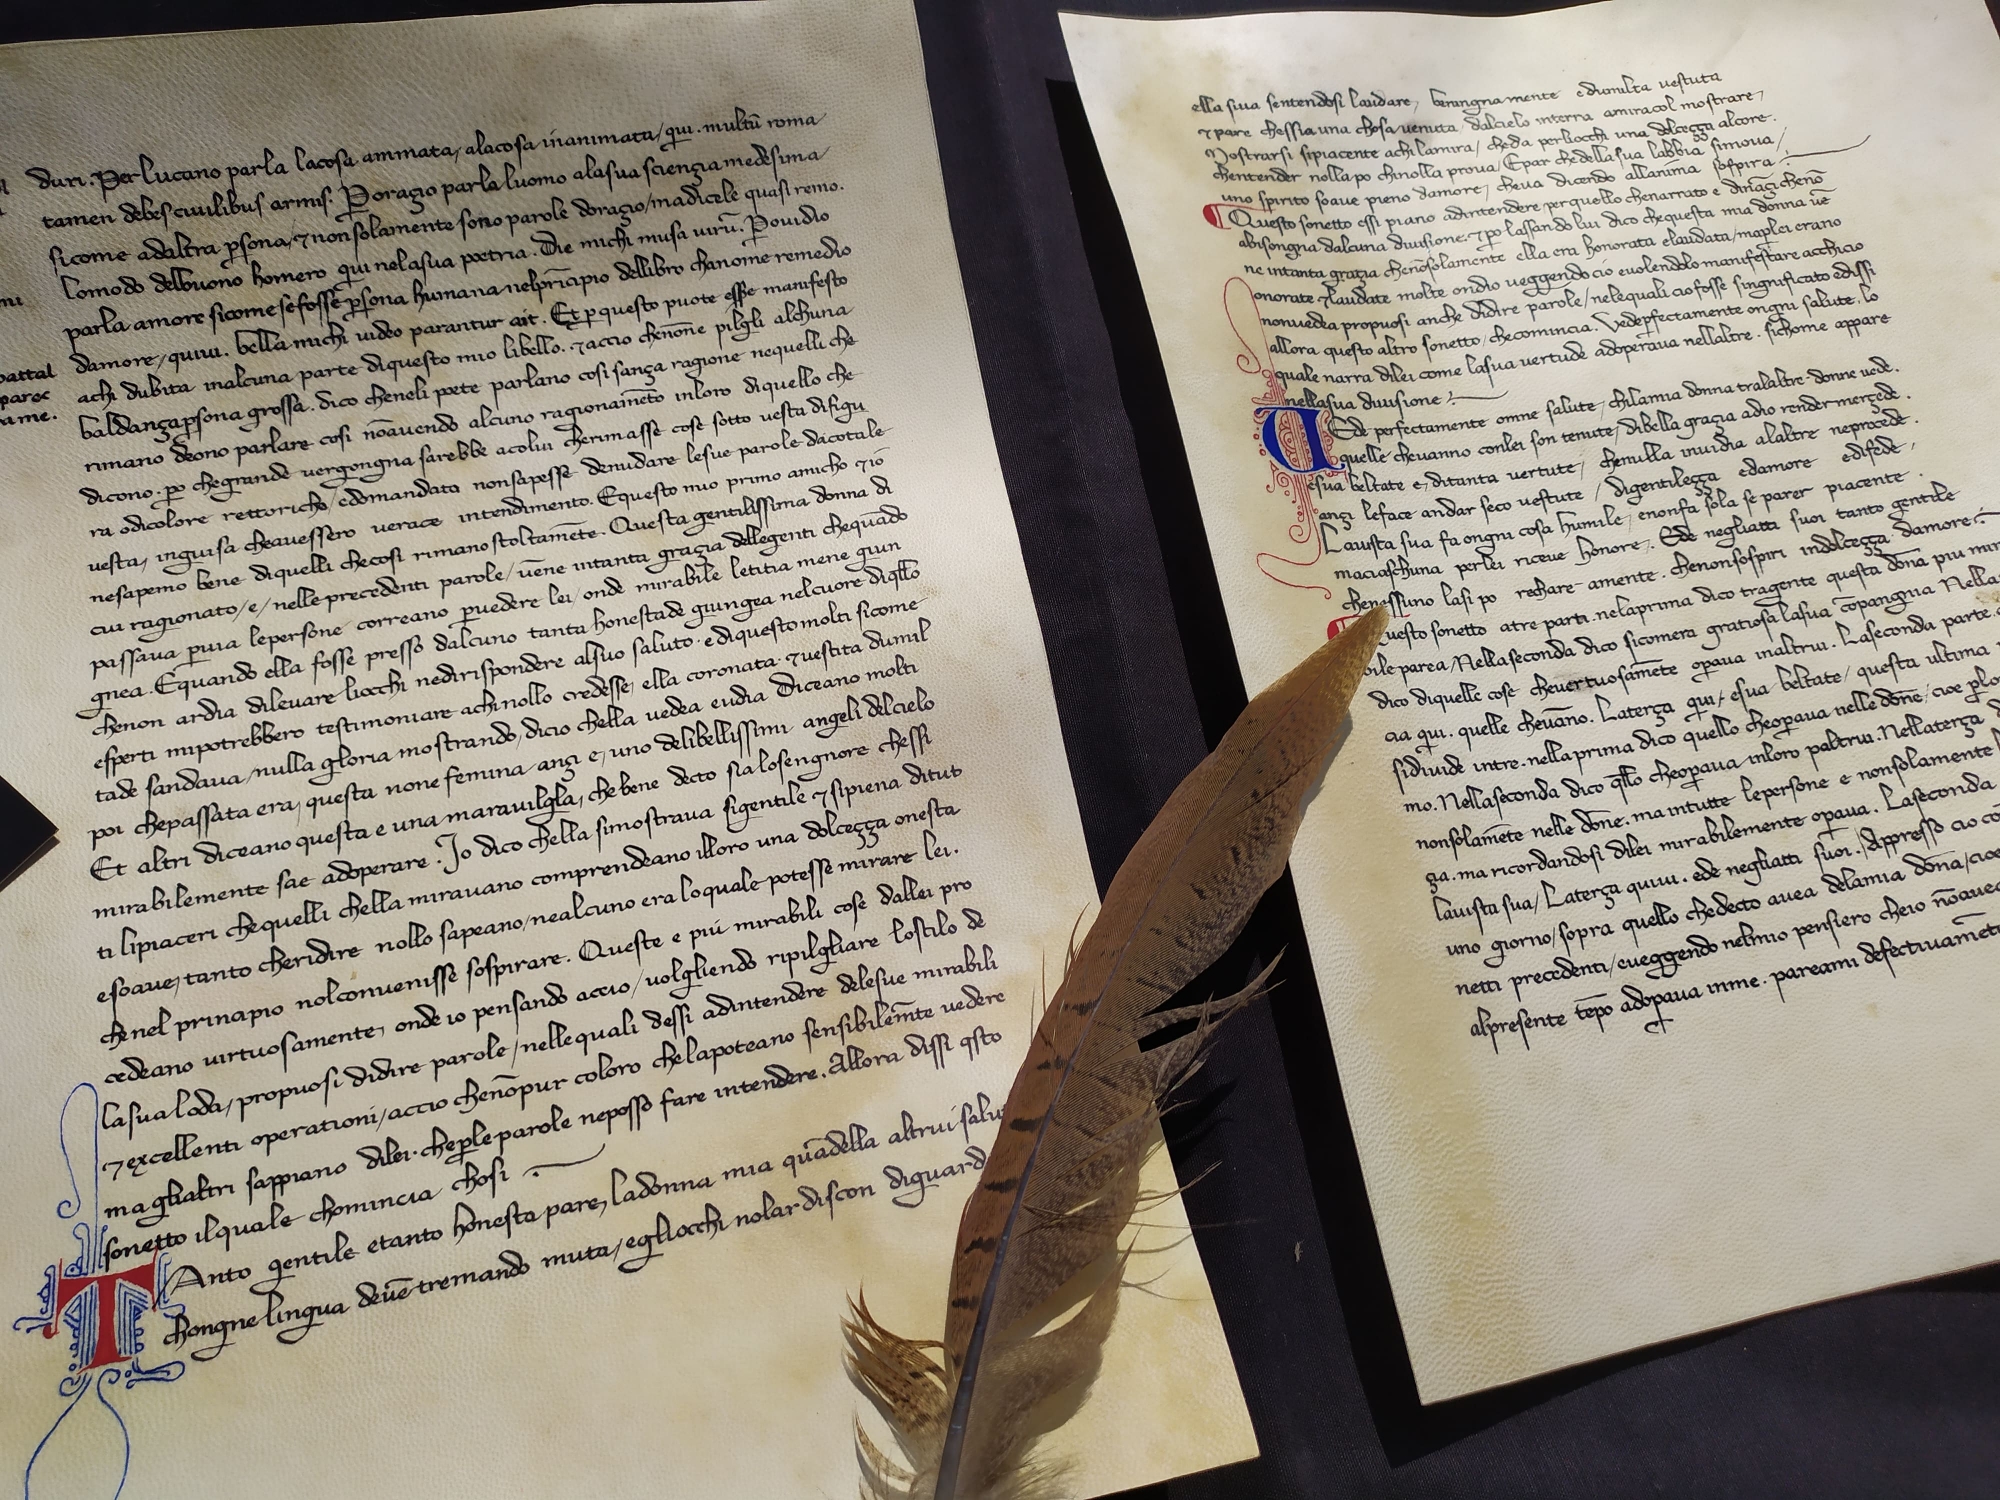 duri. Per lucano parla lacosa ammata, alacosa inanimata, qui. multū roma
tamen debes civilibus armis. P oragio parla luomo alasua scienza medesima
sicome adaltra psona, ⁊ non solamente sono parole doragio, madicele quasi remo.
lomodo delbuono homero qui nelasua poetria. Die michi musa virū. P ovidio
parla amore sicome se fosse psona humana nelprīcipio dellibro chanome remedio
damore, quivi. bella michi video parantur ait. Et p questo puote esse manifesto
achi dubita inalcuna parte diquesto mio libello. ⁊ accio chenōne pilgli alchuna
baldanza psona grossa. dico cheneli poete parlano cosi sanza ragione nequelli che
rimano deono parlare cosi nōavendo alcuno ragionamēto inloro diquello che
dicono. po chegrande vergongna sarebbe acolui cherimasse cose sotto vesta difigu
ra odicolore rettoricho, eddmandato nonsapesse denudare lesue parole dacotale
vesta, inguisa cheavessero verace intendimento. Equesto mio primo amicho ⁊ io
nesapemo bene diquelli checosi rimano stoltamēte. Questa gentilissima donna di
cui ragionato, e, nelle precedenti parole, vēne intanta grazia dellegenti chequādo
passava p via lepersone correano p vedere lei, onde mirabile letitia mene giun
gnea. Equando ella fosse presso dalcuno tanta honestade giungea nelcuore diqllo
chenon ardia dilevare liocchi nedirispondere alsuo saluto. e diquesto molti sicome
esperti mipotrebbero testimoniare achinollo credesse, ella coronata. ⁊ vestita dumil
tade sandava, nulla gloria mostrando, dicio chella vedea eudia Diceano molti
poi chepassata era, questa none femina. anzi e, uno delibellissimi angeli delcielo
Et altri diceano questa e una maravilgla, che bene decto sia losengnore chessi
mirabilemente sae adoperare. Io dico chella simostrava sigentile ⁊ sipiena ditut
ti lipiaceri chequelli chella miravano comprendeano illoro una dolcezza onesta
esoave, tanto cheridire nollo sapeano, nealcuno era loquale potesse mirare lei.
che nel principio nolconvenisse sospirare. Queste e piú mirabili cose dallei pro
cedeano virtuosamente, onde io pensando accio, volgliendo ripilgliare lostilo de
lasua loda, propuosi didire parole, nelle quali dessi adintendere delesue mirabili
⁊ excellenti operationi, accio chenōpur coloro chelapoteano sensibilemte vedere
ma glialtri sappiano dilei. cheple parole neposso fare intendere. Allora dissi qsto
sonetto ilquale chomincia chosi
TAnto gentile etanto honesta pare, ladonna mia quādella altrui salu
chongne lingua devē tremando muta, egliocchi nolardiscon diguard
ella siva sentendosi laudare, beningnamente e dumilta vestuta
⁊ pare chessia una chosa venuta, dalcielo interra amiracol mostrare,
Mostrarsi sipiacente achi lamira, cheda perliocchi una dolcezza alcore.
chentender nolla po chinolla prova, Epar chedella sua labbia simova,
uno spirito soave pieno damore, cheva dicendo allanima sospira.
Questo sonetto essi piano adintendere perquello chenarrato e dināzi chenō
abisongna dalcuna divisione. ⁊ po lassando lui dico chequesta mia donna vē
ne intanta grazia chenōsolamente ella era honorata elaudata, maplei erano
onorate ⁊ laudate molte. ondio veggendo cio evolendolo manifestare acchicio
nonvedea propuosi anche didire parole, nelequali cio fosse singnificato edissi
allora questo altro sonetto, checomincia. Vedeperfectamente ongni salute, lo
quale narra dilei come lasua vertude adoperava nellaltre. sichome appare
nellasua divisione
VEde perfectamente omne salute, chilamia donna tralaltre donne vede.
quelle chevanno conlei son tenute, dibella grazia adio render merzede.
esua beltate e, ditanta vertute, chenulla invidia alaltre neprocede.
anzi leface andar seco vestute, digentilezza edamore edifede,
Lavista sua fa ongni cosa humile, enonfa sola se parer piacente.
maciaschuna perlei riceve honore. Ede negliatti suoi tanto gentile
chenessuno lasi po rechare amente. chenonsospiri indolcezza damore
Questo sonetto atre parti. nelaprima dico tragente questa dōna piu mir
bile parea, Nellaseconda dico sicomera gratiosa lasua cōpangnia Nella
dico diquelle cose chevertuosamēte opava inaltrui. Laseconda parte.
cia qui. quelle chevāno. Laterza qui, esua beltate, questa ultima
sidivide intre. nellaprima dico quello cheopava nelle dōne, cioe plo
mo. Nellaseconda dico qllo cheopava inloro paltrui. Nellaterza
nonsolamēte nelle dōne. ma intutte lepersone e nonsolamente
za. ma ricordandosi dilei mirabilemente opava. Laseconda
lavista sua, Laterza quivi. ede negliatti suoi. Appresso cio co
uno giorno, sopra quello chedecto avea delamia dōna, cioe
netti precedenti, eveggendo nelmio pensiero cheio nōavea
alpresente tēpo adopava inme. pareami defectivamēt